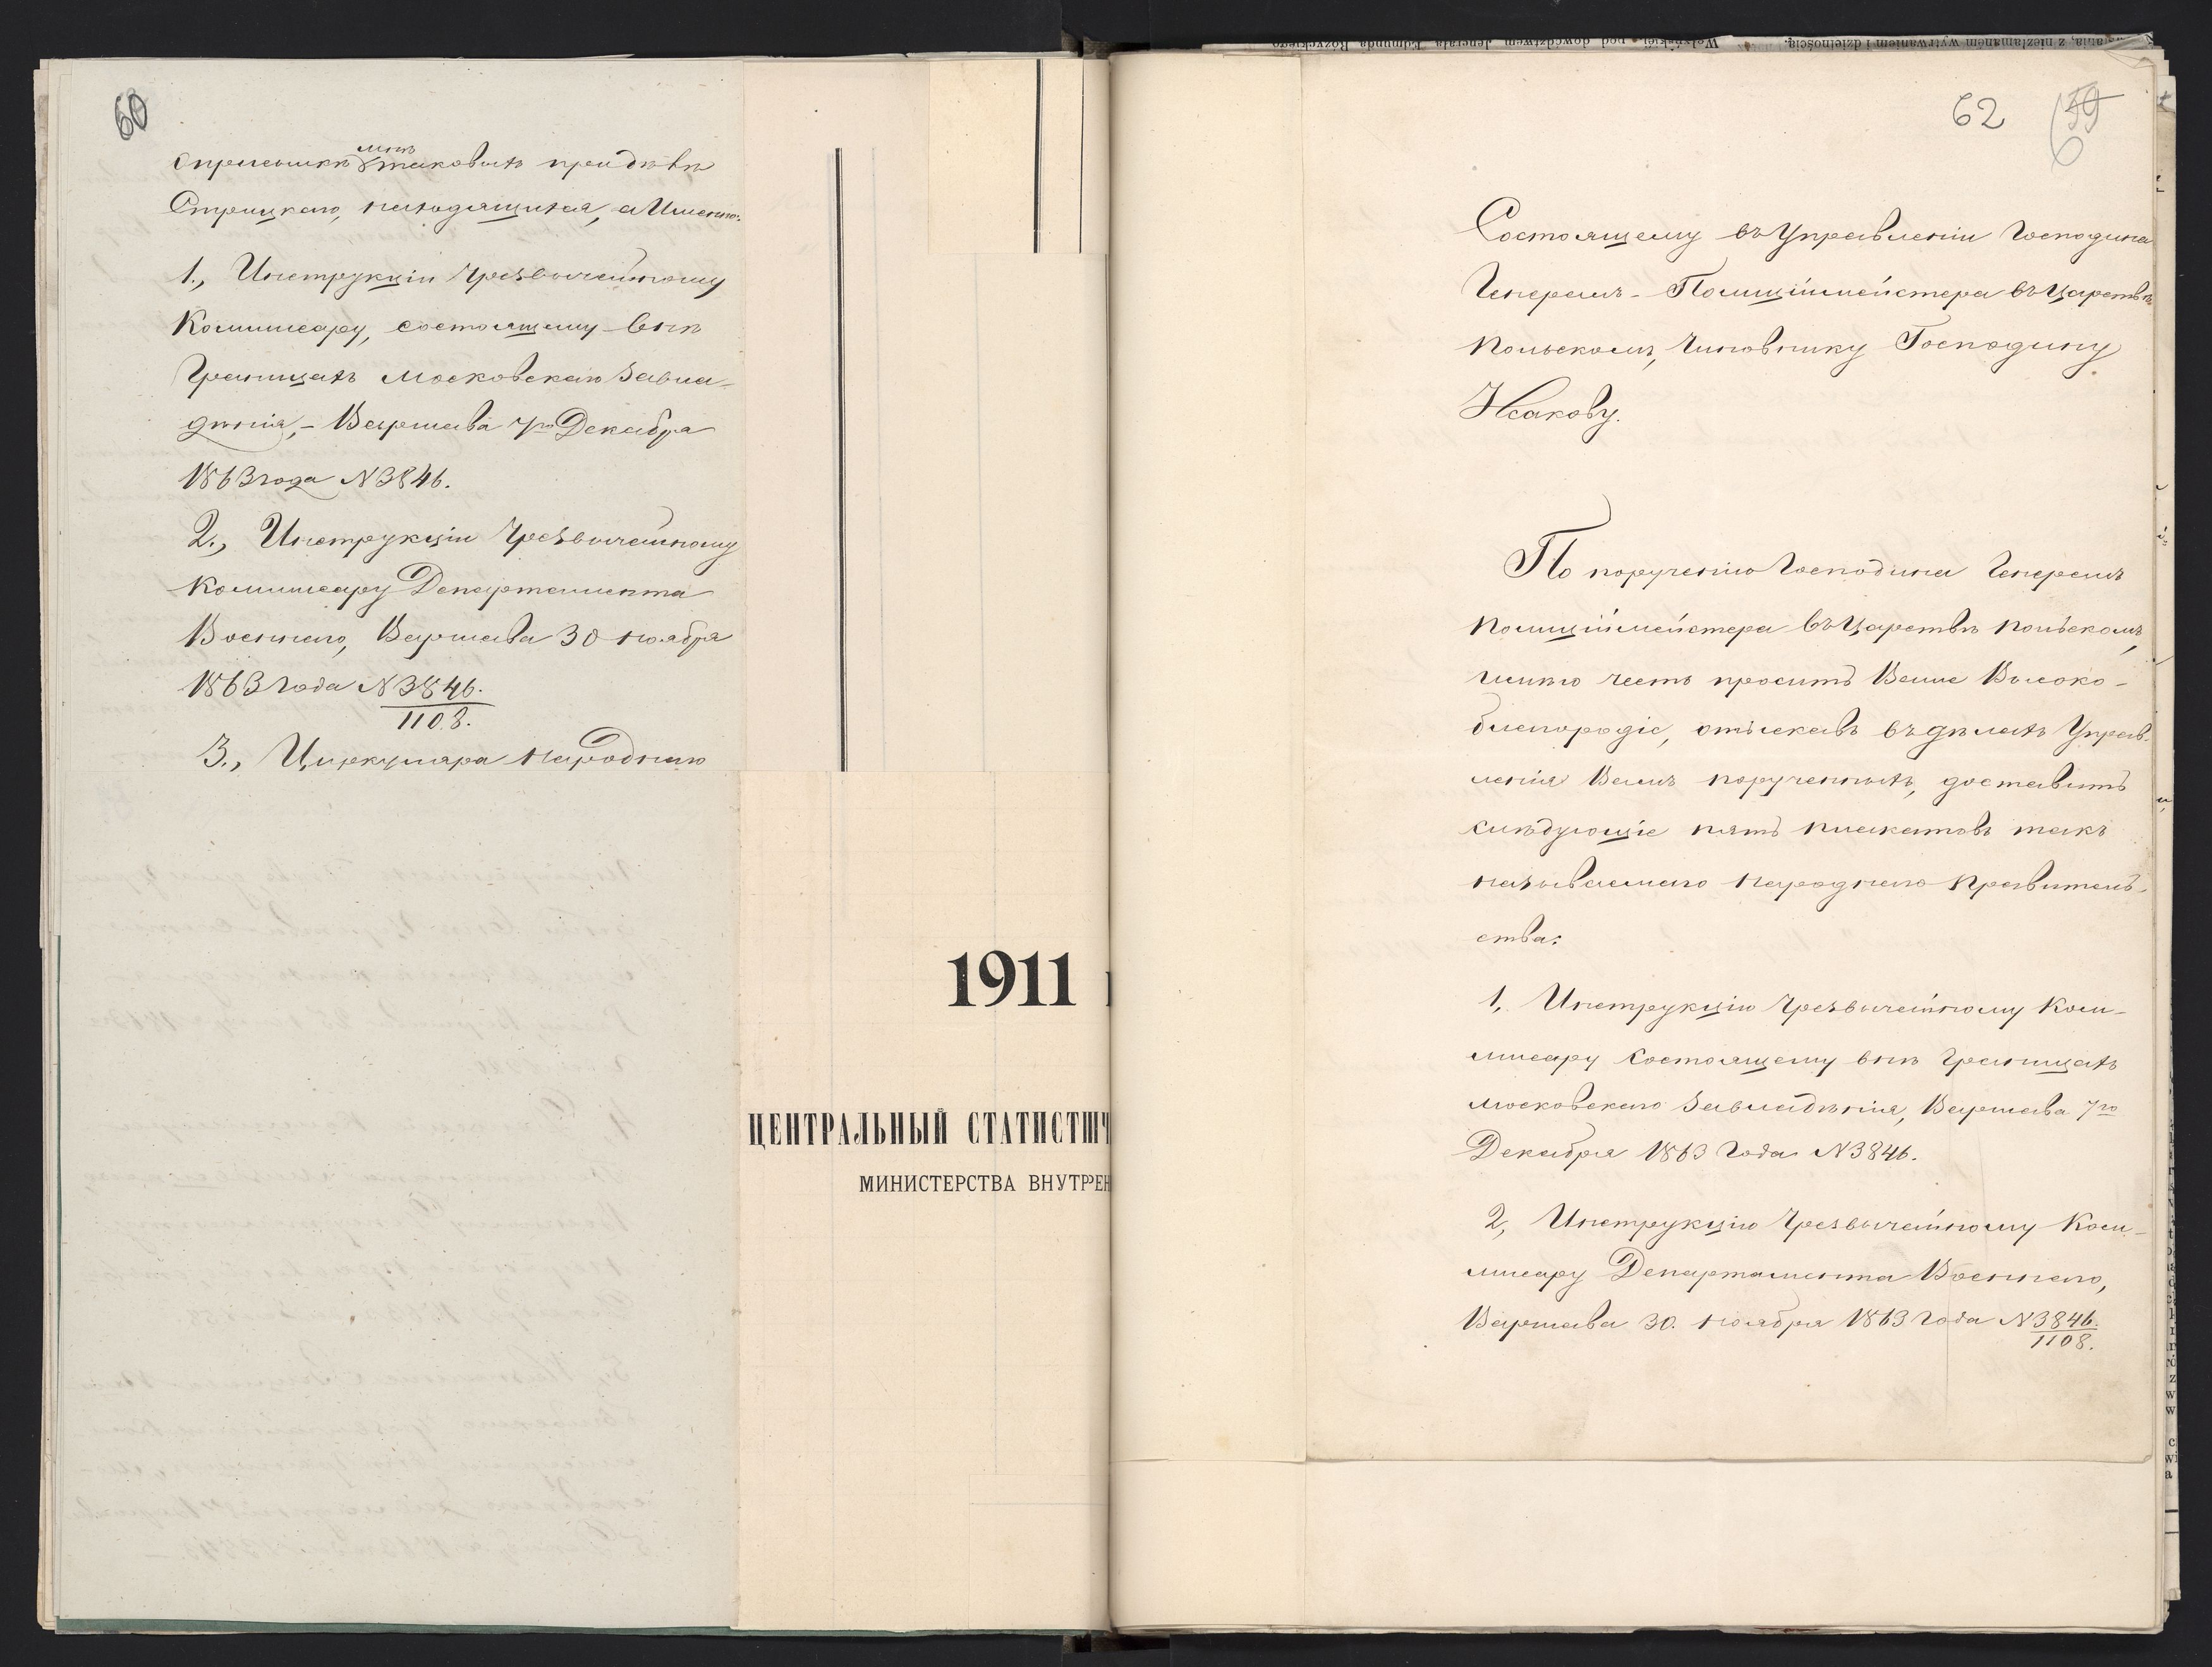 60
мнѣ
таковыхъ при дѣлѣ
Стрицкаго, находящихся, а Именно:
1., Инструкціи Чрезвычайному
Коммисару, состоящему внѣ
Границахъ Московскаго Завла-
дѣнія, – Варшава 7го Декабря
1863 года N 3846.
2., Инструкціи Чрезвычайному
Коммисару Департамента
Военнаго, Варшава 30 ноября
1863 года N 3846.
1108.
3., Циркуляра Народнаго
1911
ЦЕНТРАЛЬНЫЙ СТАТИСТИЧ
МИНИСТЕРСТВА ВНУТРЕН
62 59
Состоящему въ Управленіи Господина
Генералъ-Полиціймейстера въ Царствѣ
Польскомъ, Чиновнику Господину
По порученію Господина Генералъ
Полиціймейстера въ Царствѣ Польскомъ,
имѣю честь просить Ваше Высоко-
благородіе, отыскавъ въ дѣлахъ Управ-
ленія Вамъ порученныхъ, доставить
слѣдующіе пять плакатовъ такъ
называемаго Народнаго Правитель-
ства:
1, Инструкцію Чрезвычайному Ком-
мисару состоящему внѣ Границахъ
Московскаго Завладѣнія, Варшава 7го
Декабря 1863 года N 3846.
2, Инструкцію Чрезвычайному Ком-
мисару Департамента Военнаго,
Варшава 30. ноября 1863 года N 3846.
1108.